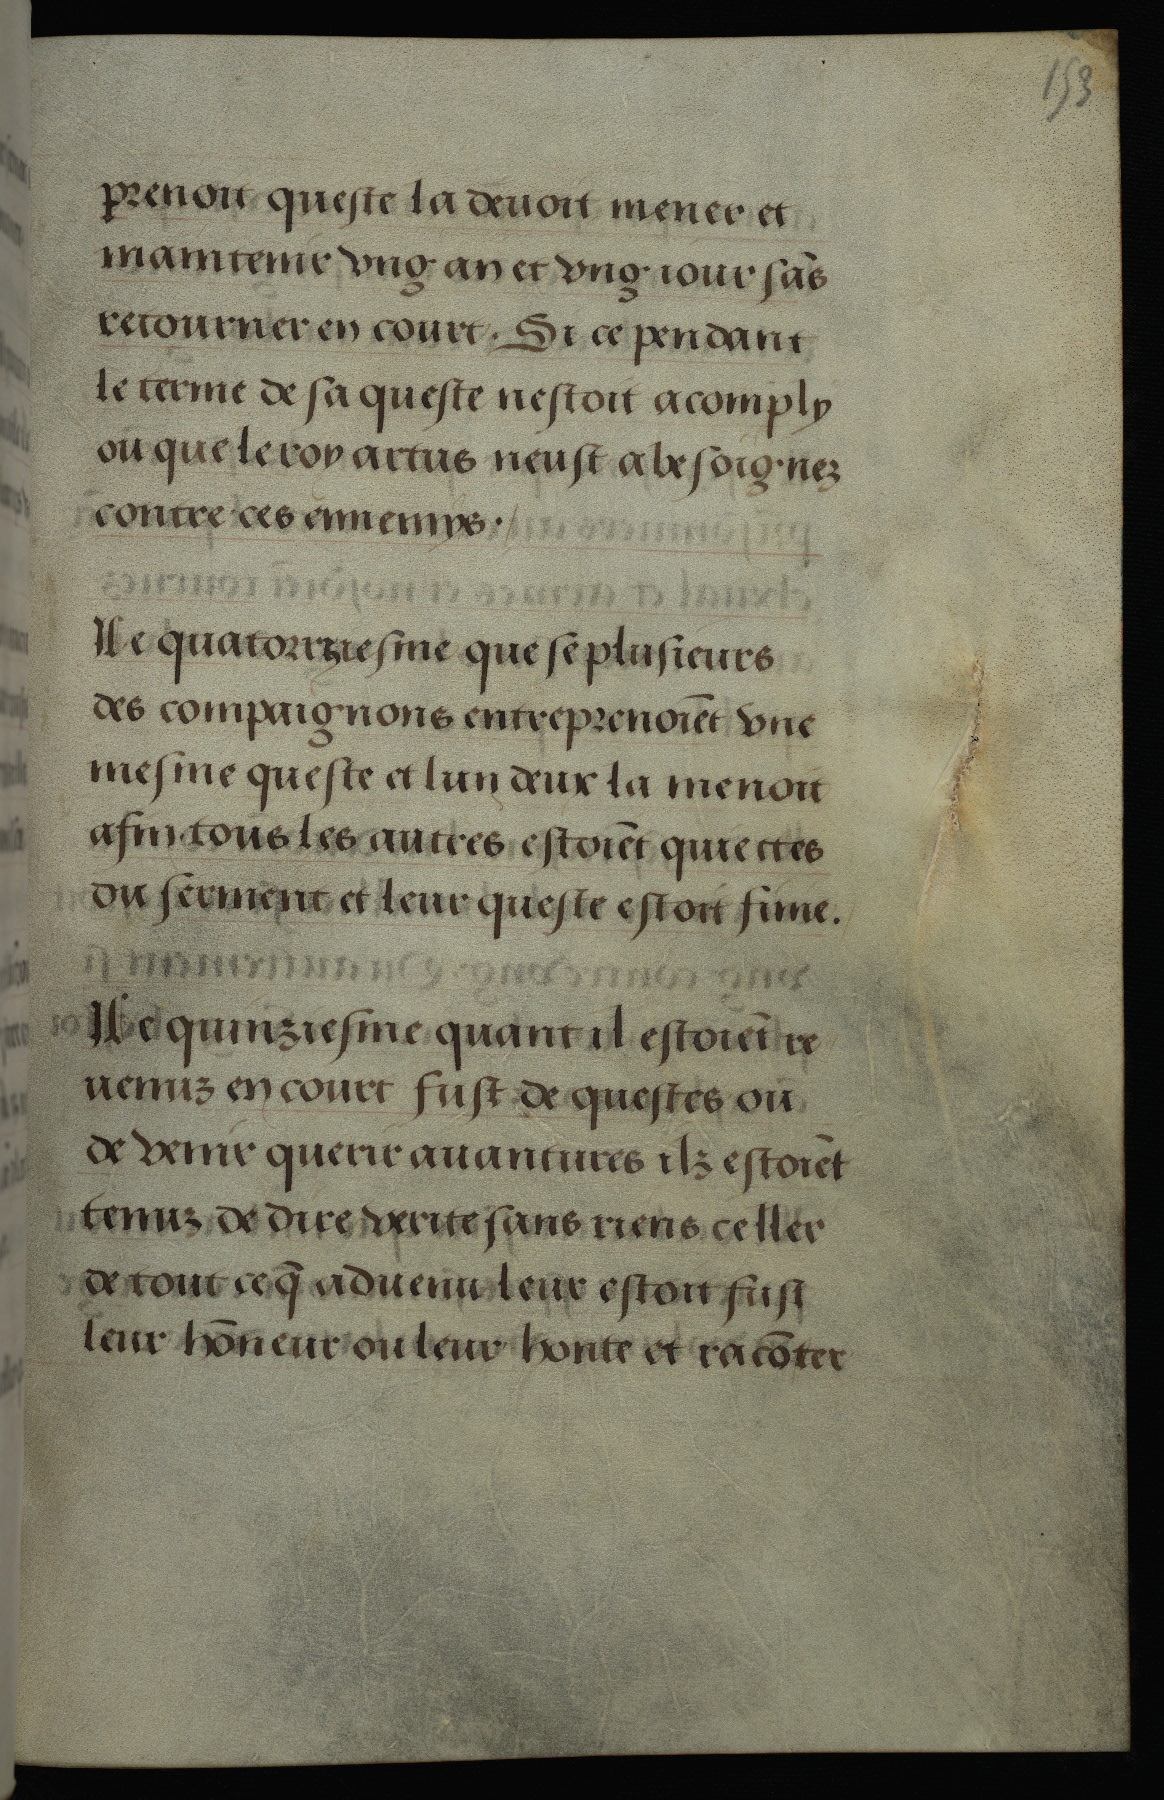 153
prenoit queste la deuoit mener et
maintenir vng an et vng iour sās
retourner en court. Si ce pendant
le terme de sa queste nestoit acomply
ou que le roy artus neust a besoignez
contre ces ennemys.
Le quatorziesme que se plusieurs
des compaignons entreprenoiēt vne
mesme queste et lun deux la menoit
afin tous les autres estoiēt quiectes
du serment et leur queste estoit finie.
Le quinziesme quant il estoiēt re
uenuz en court fust de questes ou
de venir querir auantures ilz estoiēt
tenuz de dire verite sans riens celler
de tout ce q̄ aduenu leur estoit fust
leur hōneur ou leur honte et racōter